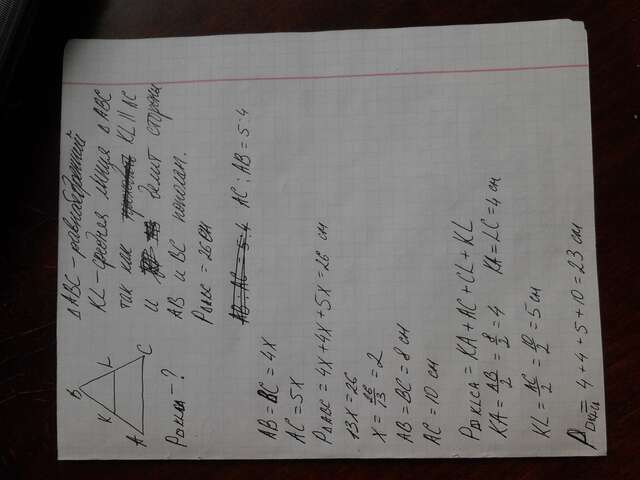 B
K L
A C
P□KLCA – ?
△ABC – равнобедренный
KL – средняя линия △ABC
так как KL || AC
и делит стороны
AB и BC пополам.
P△ABC = 26 см
AB : AC = 5 : 4 AC : AB = 5 : 4
AB = BC = 4x
AC = 5x
P△ABC = 4x + 4x + 5x = 26 см
13x = 26
x = 26/13 = 2
AB = BC = 8 см
AC = 10 см
P□KLCA = KA + AC + CL + KL
KA = AB/2 = 8/2 = 4 KA = LC = 4 см
KL = AC/2 = 10/2 = 5 см
P□KLCA = 4 + 4 + 5 + 10 = 23 см